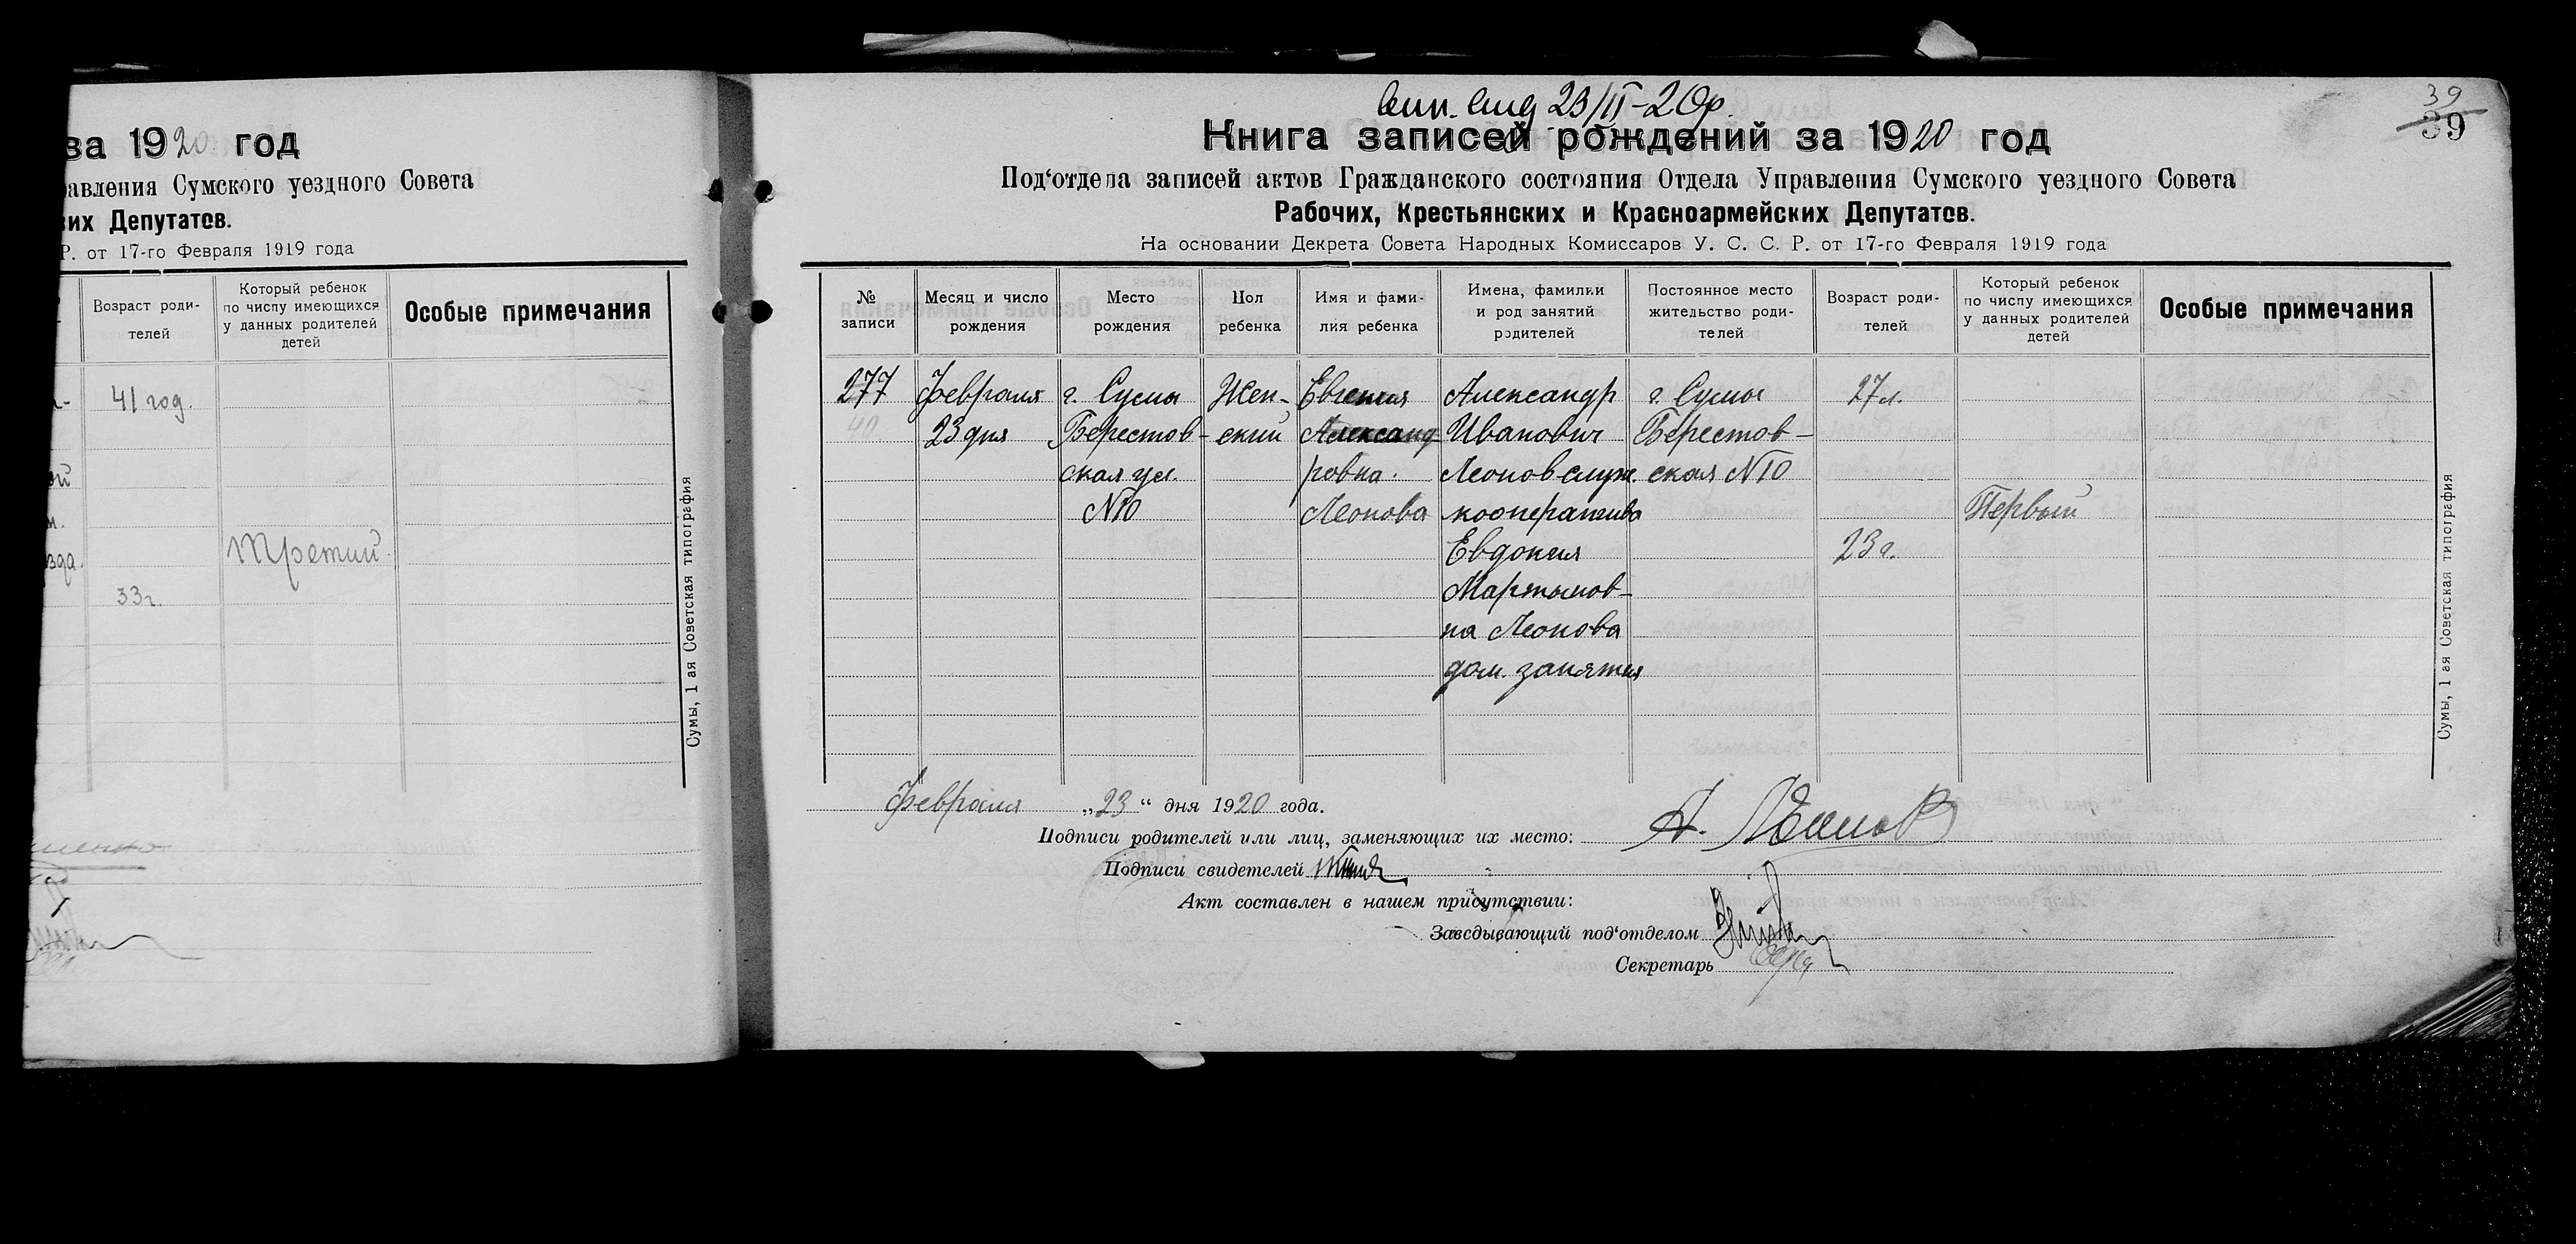 за 1920 год
равления Сумского уездного Совета
ких Депутатов.
Р. от 17-го Февраля 1919 года
Возраст роди-
телей
Который ребенок
по числу имеющихся
у данных родителей
детей
Особые примечания
41 год.
Третий
33 г.
Сумы, 1 ая Советская типография
23/II-20р.
39
39
Книга записей рождений за 1920 год
Под‘отдела записей актов Гражданского состояния Отдела Управления Сумского уездного Совета
Рабочих, Крестьянских и Красноармейских Депутатов.
На основании Декрета Совета Народных Комиссаров У. С. С. Р. от 17-го Февраля 1919 года
№
записи
Месяц и число
рождения
Место
рождения
Пол
ребенка
Имя и фами-
лия ребенка
Имена, фамилии
и род занятий
родителей
Постоянное место
жительство роди-
телей
Возраст роди-
телей
Который ребенок
по числу имеющихся
у данных родителей
детей
Особые примечания
277
40
Февраля
23 дня
г. Сумы
Берестов-
ская ул.
N10
Жен-
ский
Евгения
Александ
ровна.
Леонова
Александр
Иванович
Леонов служ.
кооператива
Евдокия
Мартынов-
на Леонова
дом. занятия
г. Сумы
Берестов-
ская N10
27 л.
23 г.
Первый
Сумы, 1 ая Советская типография
Февраля „23“ дня 1920 года.
Подписи родителей или лиц, заменяющих их место: А. Леонов
Подписи свидетелей
Акт составлен в нашем присутствии:
Заведывающий под‘отделом
Секретарь